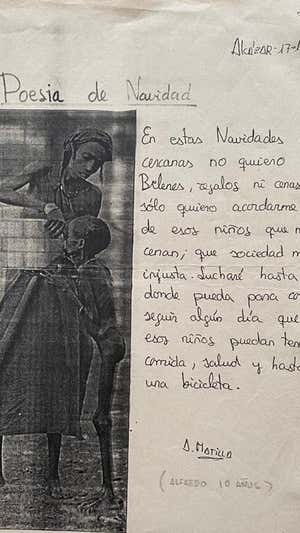 Alcázar-17-
Poesia de Navidad
En estas Navidades
cercanas no quiero
Belenes, regalos ni cenas
sólo quiero acordarme
de esos niños que n
cenan, que sociedad m
injusta. Lucharé hasta
donde pueda para con
seguir algún día que
esos niños puedan ten
comida, salud y hasta
una bicicleta.
A. Matilla
(ALFREDO 10 AÑOS)